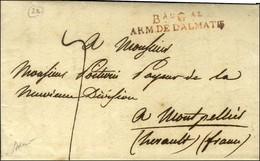 B AU G
ARM. DE DALMATIE
A Monsieur
Monsieur Poitevin Payeur de la
neuvieme Division
A Montpellier
(herault) (france)